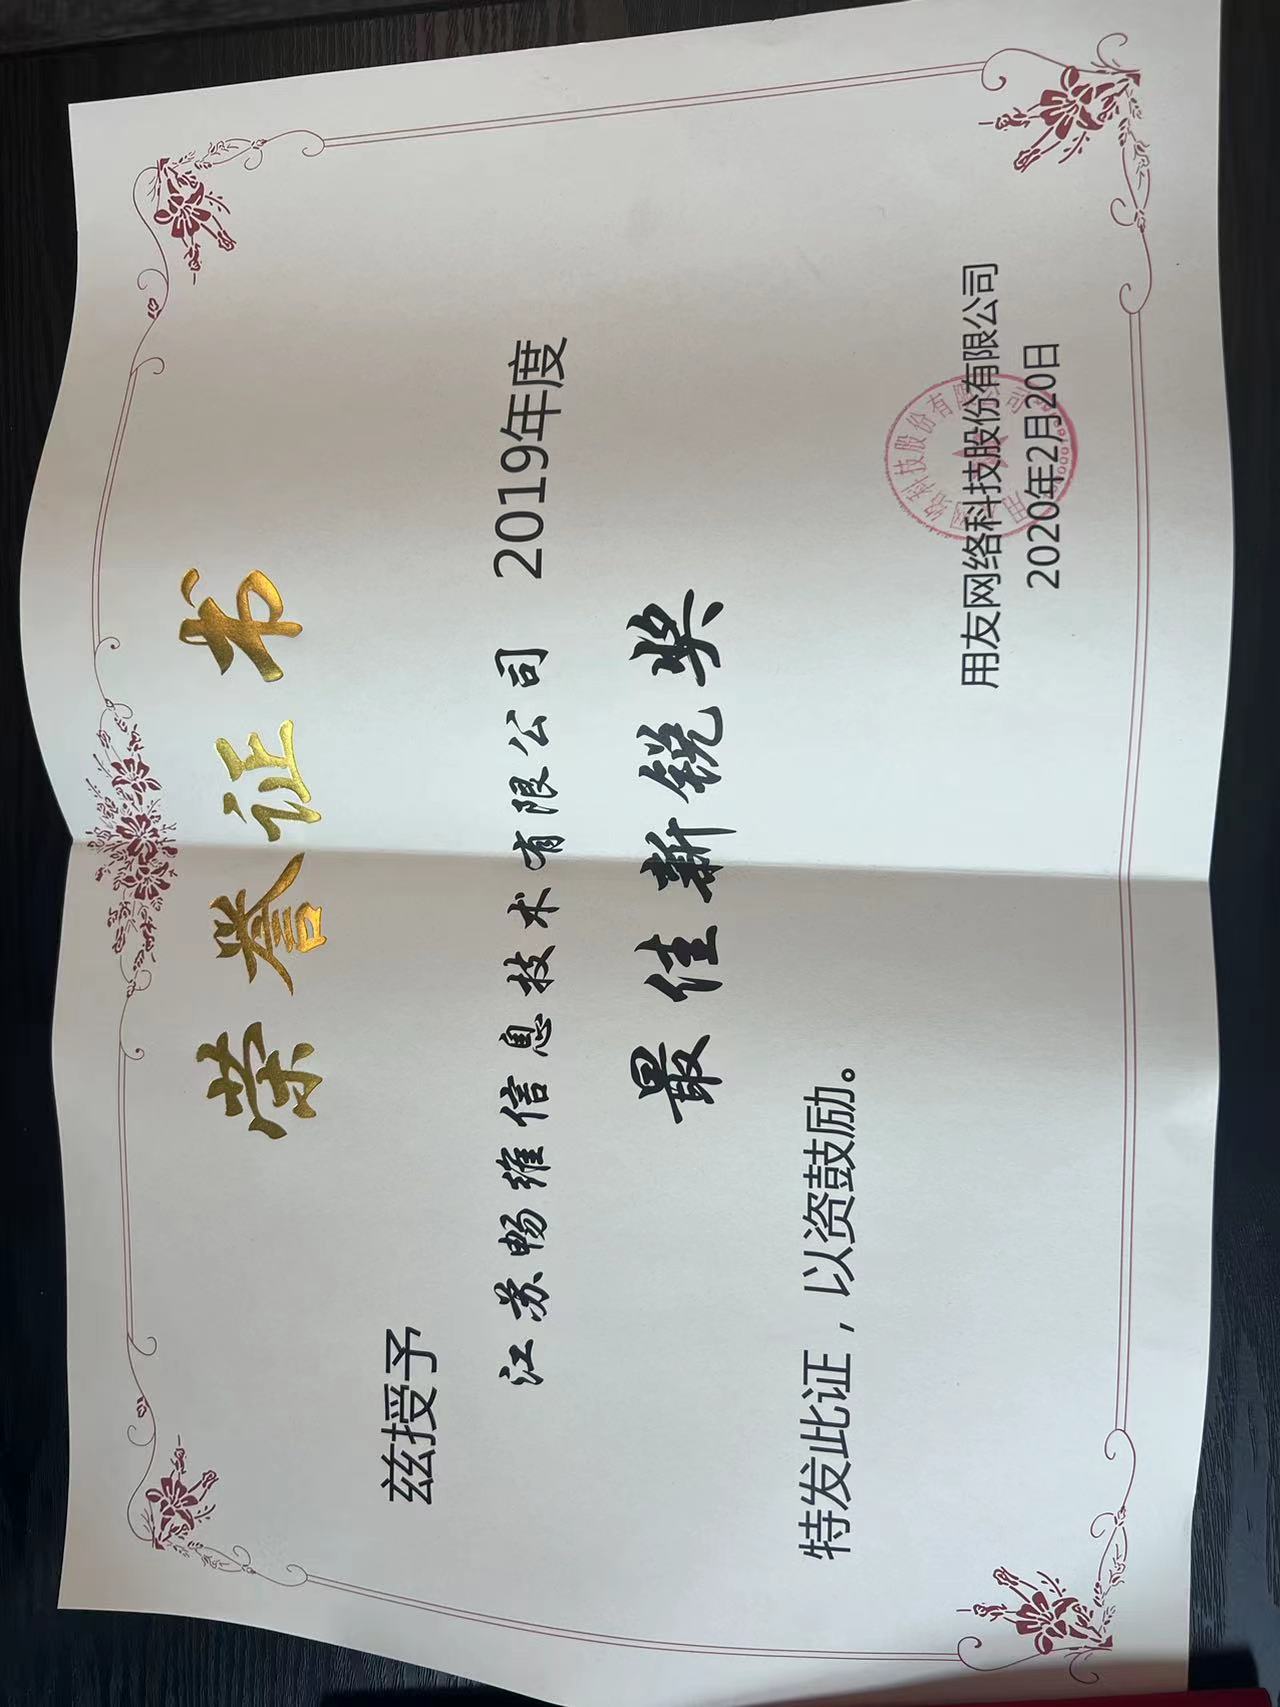 荣誉证书
兹授予
江苏畅维信息技术有限公司 2019年度
最佳新锐奖
特发此证，以资鼓励。
用友网络科技股份有限公司
2020年2月20日